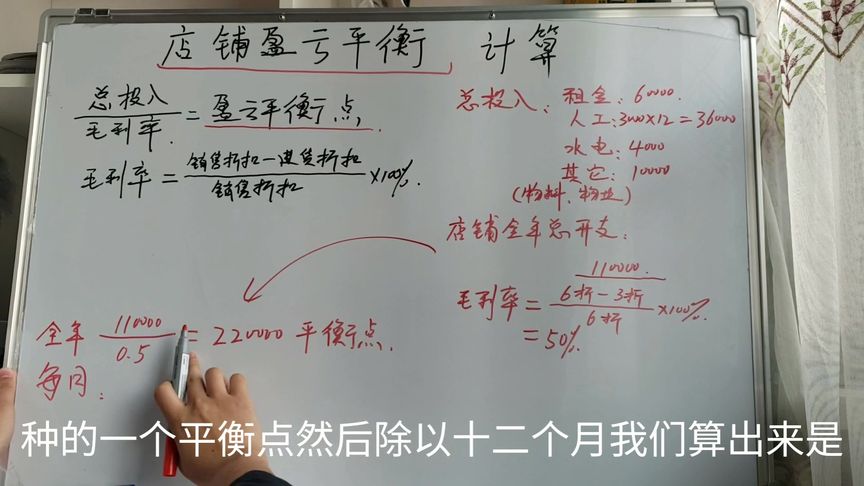 店铺盈亏平衡 计算
总投入/毛利率. = 盈亏平衡点.
毛利率 = 销售折扣-进货折扣/销售折扣 ×100%.
总投入: 租金: 60000.
人工: 3000×12=36000
水电: 4000
其它: 10000
(物料、物业)
店铺全年总开支:
110000.
毛利率 = 6折-3折/6折 ×100%.
= 50%.
全年 110000/0.5 = 220000 平衡点.
每月:
种的一个平衡点然后除以十二个月我们算出来是